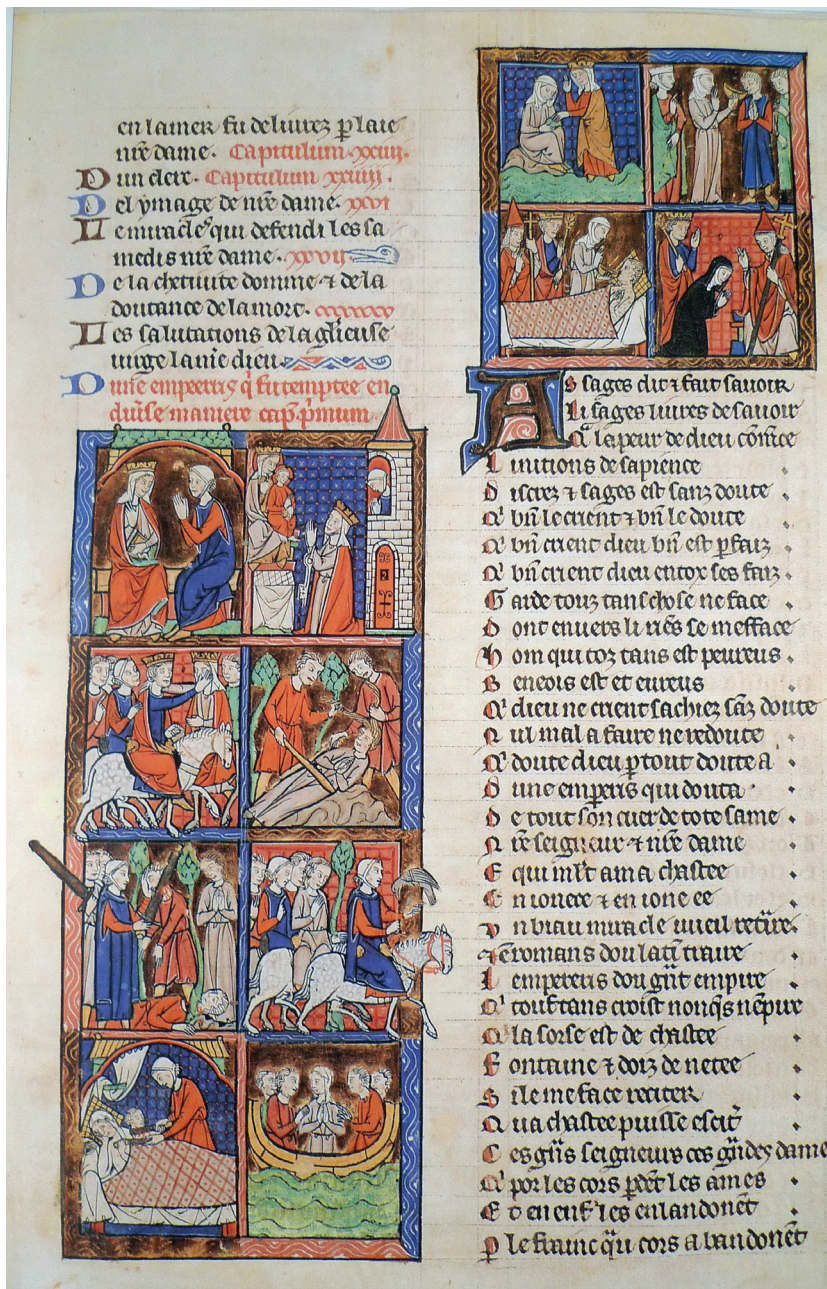 en la mer fu deliurez p laie
nr̄e dame. Capitulum xxiii.
Dun clerc. Capitulum xxiiii.
Del ymage de nr̄e dame. xxvi
Le miracle qui defendi les sa
medis nr̄e dame. xxvii
De la chetiuite domme ⁊ de la
doutance de la mort.
Les salutations de la gl̄ieuse
uirge la mē dieu.
Dune emperris q̄ fu temptee en
diu̾se maniere cap̄. p̄mum.
As sages dit ⁊ fait sauoir
Li sages liures de sauoir
Q̄ la peur de dieu com̄ce
L initions de sapience
D iscrez ⁊ sages est sanz doute
Q̄ bn̄ le crient ⁊ bn̄ le doute
Q̄ bn̄ crient dieu bn̄ est p̄faiz
Q̄ bn̄ crient dieu en toz ses faiz
G arde touz tans chose ne face
D ont enuers li riēs se mefface
H om qui toz tans est peureus
B eneois est et eureus
Q̄ dieu ne crient sachiez sāz doute
N ul mal a faire ne redoute
Q̄ doute dieu p tout doute a
D une emp̄eris qui douta
D e tout son cuer de tote s'ame
N r̄e seigneur ⁊ nr̄e dame
E qui ml̄t ama chastee
E n ionece ⁊ en ione ee
V n biau miracle uueil ret̾ire
⁊ ē romans dou latī traire
L empereris dou gnt empire
Q̄ touz tans croist nonq̄s nēpire
Q̄ la sorse est de chastee
F ontaine ⁊ doiz de netee
S i le me face reciter
Q ua chastee puisse esciter
C es gn̄s seigneurs ces gn̄des dame
Q̄ por les cors pdēt les ames
E t en enf̾ les en landonēt
P le frainc q̄u cors abandonēt